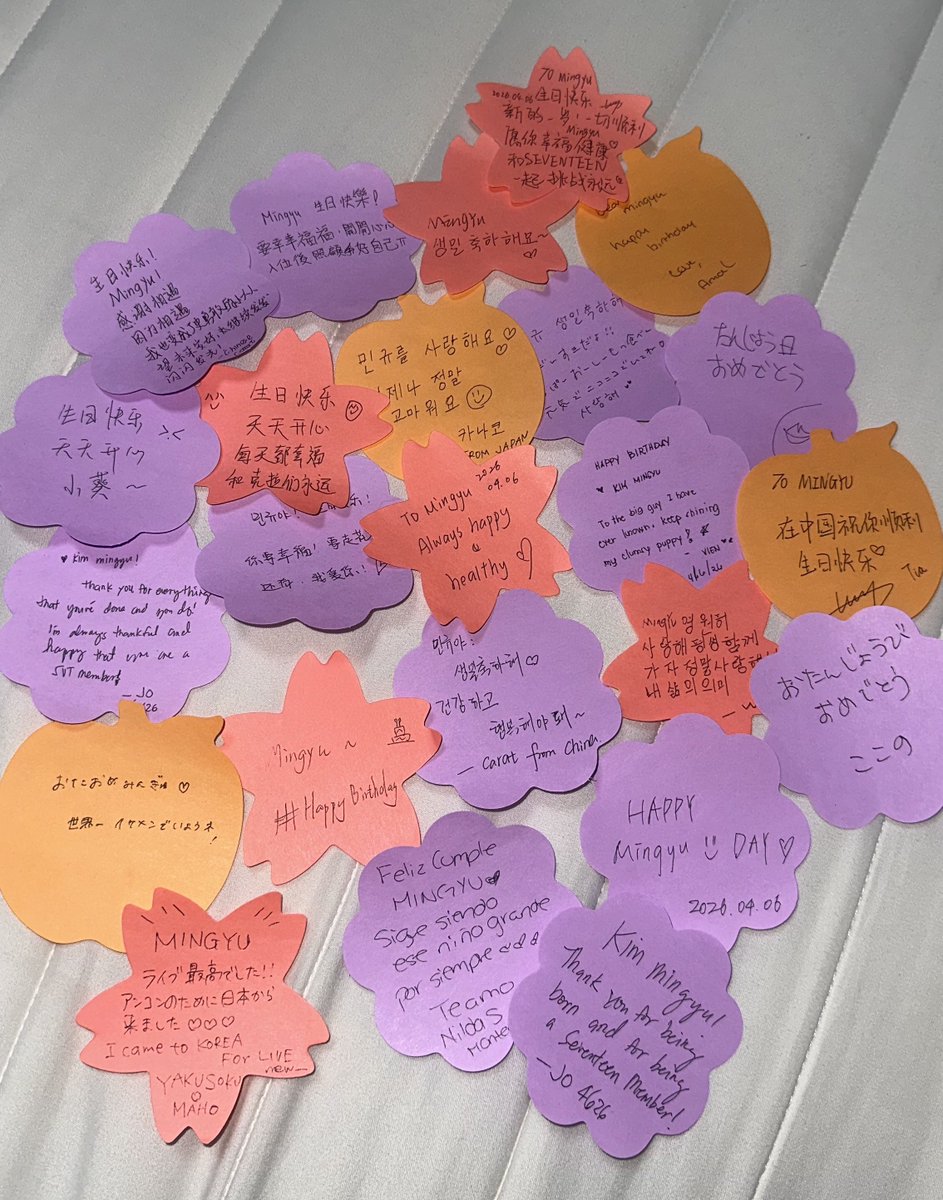 TO Mingyu
2026.04.06 生日快乐
新的一岁,一切顺利
Mingyu
愿你幸福健康♡
和SEVENTEEN
一起挑战永远
dear mingyu
happy
birthday
Love,
Amal
Mingyu
생일 축하해요~
♡
Mingyu 生日快樂!
要幸幸福福,開開心心
入伍後照顧好自己
生日快乐!
Mingyu!
感谢相遇
因为相遇
闪闪发光
민규를 사랑해요♡
정말
고마워요
카나코
FROM JAPAN
생일축하해
사랑해
たんじょう日
おめでとう
生日快乐
天天开心
每天都幸福
和克拉们永远
生日快乐
天天开心
小葵~
HAPPY BIRTHDAY
♥ KIM MINGYU
To the big guy I have
ever known, keep shining
my clumsy puppy!
- VIEN
4/6/26
TO MINGYU
在中国祝你顺利
生日快乐♡
Tia
2026
04.06
TO Mingyu
Always happy
healthy ♡
민규야!
你要幸福!
我爱你!
♥ Kim mingyu!
thank you for everything
that you're done and you do!
I'm always thankful and
happy that you are a
SVT member!
- JO
Mingyu 영원히
사랑해 평생 함께
가자 정말 사랑해
내 삶의 의미
민규야:
생일축하해 ♡
건강하고
행복해야 돼~
- carat from China
おたんじょうび
おめでとう
ここの
Mingyu ~
# Happy Birthday
おたおめ みんぎゅ ♡
世界一 イケメンでいようネ!
HAPPY
Mingyu DAY ♡
2026.04.06
Feliz Cumple
MINGYU♥
Sigue siendo
ese nino grande
por siempre
Te amo
Nilda S
Kim Mingyu!
Thank you for being
born and for being
a Seventeen Member!
- JO 4626
MINGYU
ライブ最高でした!!
アンコンのために日本から
来ました ♡♡♡
I came to KOREA
FOR LIVE
new_
YAKUSOKU
♡
MAHO